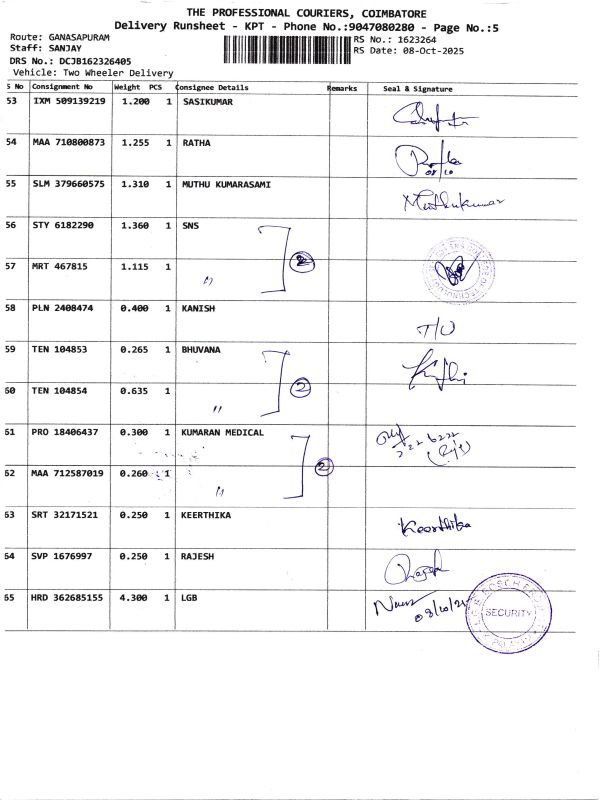 THE PROFESSIONAL COURIERS, COIMBATORE
Delivery Runsheet - KPT - Phone No.:9047080280 - Page No.:5
Route: GANASAPURAM
RS No.: 1623264
Staff: SANJAY
RS Date: 08-Oct-2025
DRS No.: DCJB162326405
Vehicle: Two Wheeler Delivery
S No Consignment No Weight PCS Consignee Details Remarks Seal & Signature
53 IXM 509139219 1.200 1 SASIKUMAR
54 MAA 710800873 1.255 1 RATHA
08/10
55 SLM 379660575 1.310 1 MUTHU KUMARASAMI
Muthukumar
56 STY 6182290 1.360 1 SNS
2
57 MRT 467815 1.115 1 "
58 PLN 2408474 0.400 1 KANISH
T/O
59 TEN 104853 0.265 1 BHUVANA
2
60 TEN 104854 0.635 1 "
61 PRO 18406437 0.300 1 KUMARAN MEDICAL
2
62 MAA 712587019 0.260 1 "
63 SRT 32171521 0.250 1 KEERTHIKA
Keerthika
64 SVP 1676997 0.250 1 RAJESH
Rajesh
65 HRD 362685155 4.300 1 LGB
SECURITY